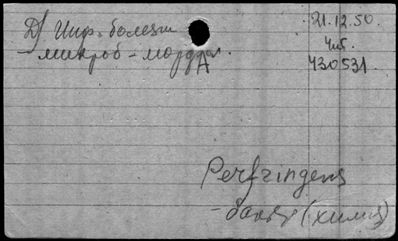 Д) Инф. болезни
21.12.50.
микроб - морфол.
А
Чит.
430531
Perfringens
- бакт (химия)